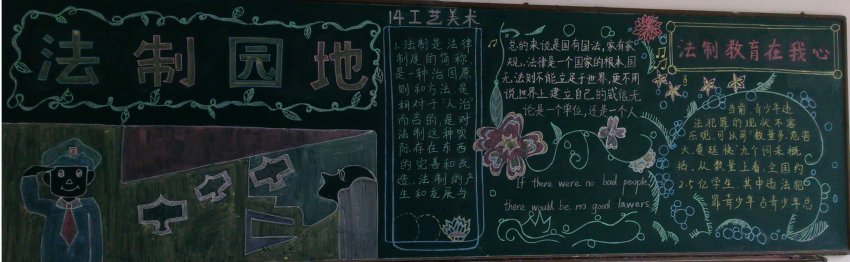 法制园地
14工艺美术
1.法制是法律
制度的简称
是一种治国原
则和方法,是
相对于“人治”
而言的,是对
法制这种实
际存在东西
的完善和改
造。法制的产
生和发展与
总的来说是国有国法,家有家
规,法律是一个国家的根本,国
无法则不能立足于世界,更不用
说世界上建立自己的威信,无
论是一个单位,还是一个人
If there were no bad people,
there would be no good lawers.
法制教育在我心
当前,青少年违
法犯罪的现状不容
乐观,可以用“数量多,危害
大,蔓延快”九个词来概
括。从数量上看,全国约
2.5亿学生,其中违法犯
罪青少年占青少年总